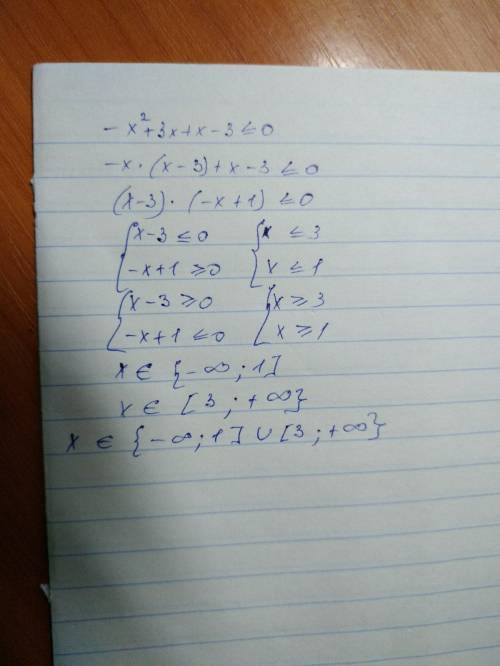 -x²+3x+x-3≤0
-x·(x-3)+x-3≤0
(x-3)·(-x+1)≤0
{x-3≤0 {x≤3
{-x+1≥0 {x≤1
{x-3≥0 {x≥3
{-x+1≤0 {x≥1
x∈{-∞;1]
x∈[3;+∞}
x∈{-∞;1]∪[3;+∞}